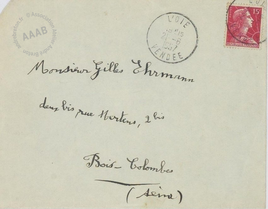 AAAB
L'OIE
VENDEE
15F
Monsieur Gilles Ehrmann
bis rue Mertens, 2 bis
Bois-Colombes
(Seine)